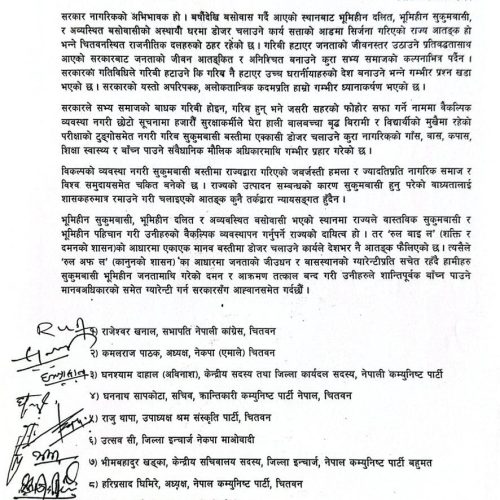 सरकार नागरिकको अभिभावक हो । बर्षौंदेखि बसोबास गर्दै आएको स्थानबाट भूमिहीन दलित, भूमिहीन सुकुमवासी,
र अव्यस्थित बसोबासीको अस्थायी घरमा डोजर चलाउने कार्य सत्ताको आडमा सिर्जना गरिएको राज्य आतङ्क हो
भन्ने चितवनस्थित राजनीतिक दलहरुको ठहर रहेको छ । गरिबी हटाएर जनताको जीवनस्तर उठाउने प्रतिबद्धतासाथ
आएको सरकारबाट जनताको जीवन आतङ्कित र अनिश्चित बनाउने कुरा सभ्य समाजको कल्पनाभित्र पर्दैन ।
सरकारका गतिविधिले गरिबी हटाउने कि गरिब नै हटाएर उच्च घरानीयाहरुको देश बनाउने भन्ने गम्भीर प्रश्न खडा
भएको छ । सरकारको यस्तो अपरिपक्क, अलोकतान्त्रिक कदमप्रति हाम्रो गम्भीर ध्यानाकर्षण भएको छ ।
सरकारले सभ्य समाजको बाधक गरिबी होइन, गरिब हुन् भने जसरी सहरको फोहोर सफा गर्ने नाममा बैकल्पिक
व्यवस्था नगरी छोटो सूचनामा हजारौं सुरक्षाकर्मीले घेरा हाली बालबच्चा बृद्ध बिरामी र विद्यार्थीको मुखैमा रहेको
परीक्षाको टुङ्गोसमेत नगरी गरिब सुकुमबासी बस्तीमा एक्कासी डोजर चलाउने कुरा नागरिकको गाँस, वास, कपास,
शिक्षा स्वास्थ्य र बाच्न पाउने संबैधानिक मौलिक अधिकारमाथि गम्भीर प्रहार गरेको छ ।
विकल्पको व्यवस्था नगरी सुकुमबासी बस्तीमा राज्यद्वारा गरिएको जबर्जस्ती हमला र ज्यादतिप्रति नागरिक समाज र
विश्व समुदायसमेत चकित बनेको छ । राज्यको उत्पादन सम्बन्धको कारण सुकुमबासी हुनु परेको बाध्यतालाई
शासकहरुमात्र रमाउने गरी चलाइएको आतङ्क कुनै तर्कद्वारा न्यायसङ्गत हुँदैन ।
भूमिहीन सुकुमबासी, भूमिहीन दलित र अव्यवस्थित बसोबासी भएको स्थानमा राज्यले वास्तविक सुकुमबासी र
भूमिहीन पहिचान गरी उनीहरुको बैकल्पिक व्यवस्थापन गर्नुपर्ने राज्यको दायित्व हो । तर 'रुल बाइ ल' (शक्ति र
दमनको शासन)को आधारमा एकाएक मानव बस्तीमा डोजर चलाउने कार्यले देशभर नै आतङ्क फैलिएको छ । त्यसैले
'रुल अफ ल' (कानुनको शासन) का आधारमा जनताको जीउधन र बासस्थानको ग्यारेन्टीप्रति सचेत रहँदै हामीहरु
सुकुमबासी भूमिहीन जनतामाथि गरेको दमन र आक्रमण तत्काल बन्द गरी उनीहरुले शान्तिपूर्वक बाँच्न पाउने
मानवअधिकारको समेत ग्यारेन्टी गर्न सरकारसँग आह्वानसमेत गर्दछौं ।
१) राजेश्वर खनाल, सभापति नेपाली कांग्रेस, चितवन
२) कमलराज पाठक, अध्यक्ष, नेकपा (एमाले) चितवन
३) घनश्याम दाहाल (अविनाश), केन्द्रीय सदस्य तथा जिल्ला कार्यदल सदस्य, नेपाली कम्युनिष्ट पार्टी
४) घनानन्द सापकोटा, सचिव, क्रान्तिकारी कम्युनिष्ट पार्टी नेपाल, चितवन
५) राजु थापा, उपाध्यक्ष श्रम संस्कृति पार्टी, चितवन
६) उत्सव सी, जिल्ला इन्चार्ज नेकपा माओवादी
७) भीमबहादुर खड्का, केन्द्रीय सचिवालय सदस्य, जिल्ला इन्चार्ज, नेपाल कम्युनिष्ट पार्टी बहुमत
८) हरिप्रसाद घिमिरे, अध्यक्ष, नेपाल कम्युनिष्ट पार्टी, चितवन